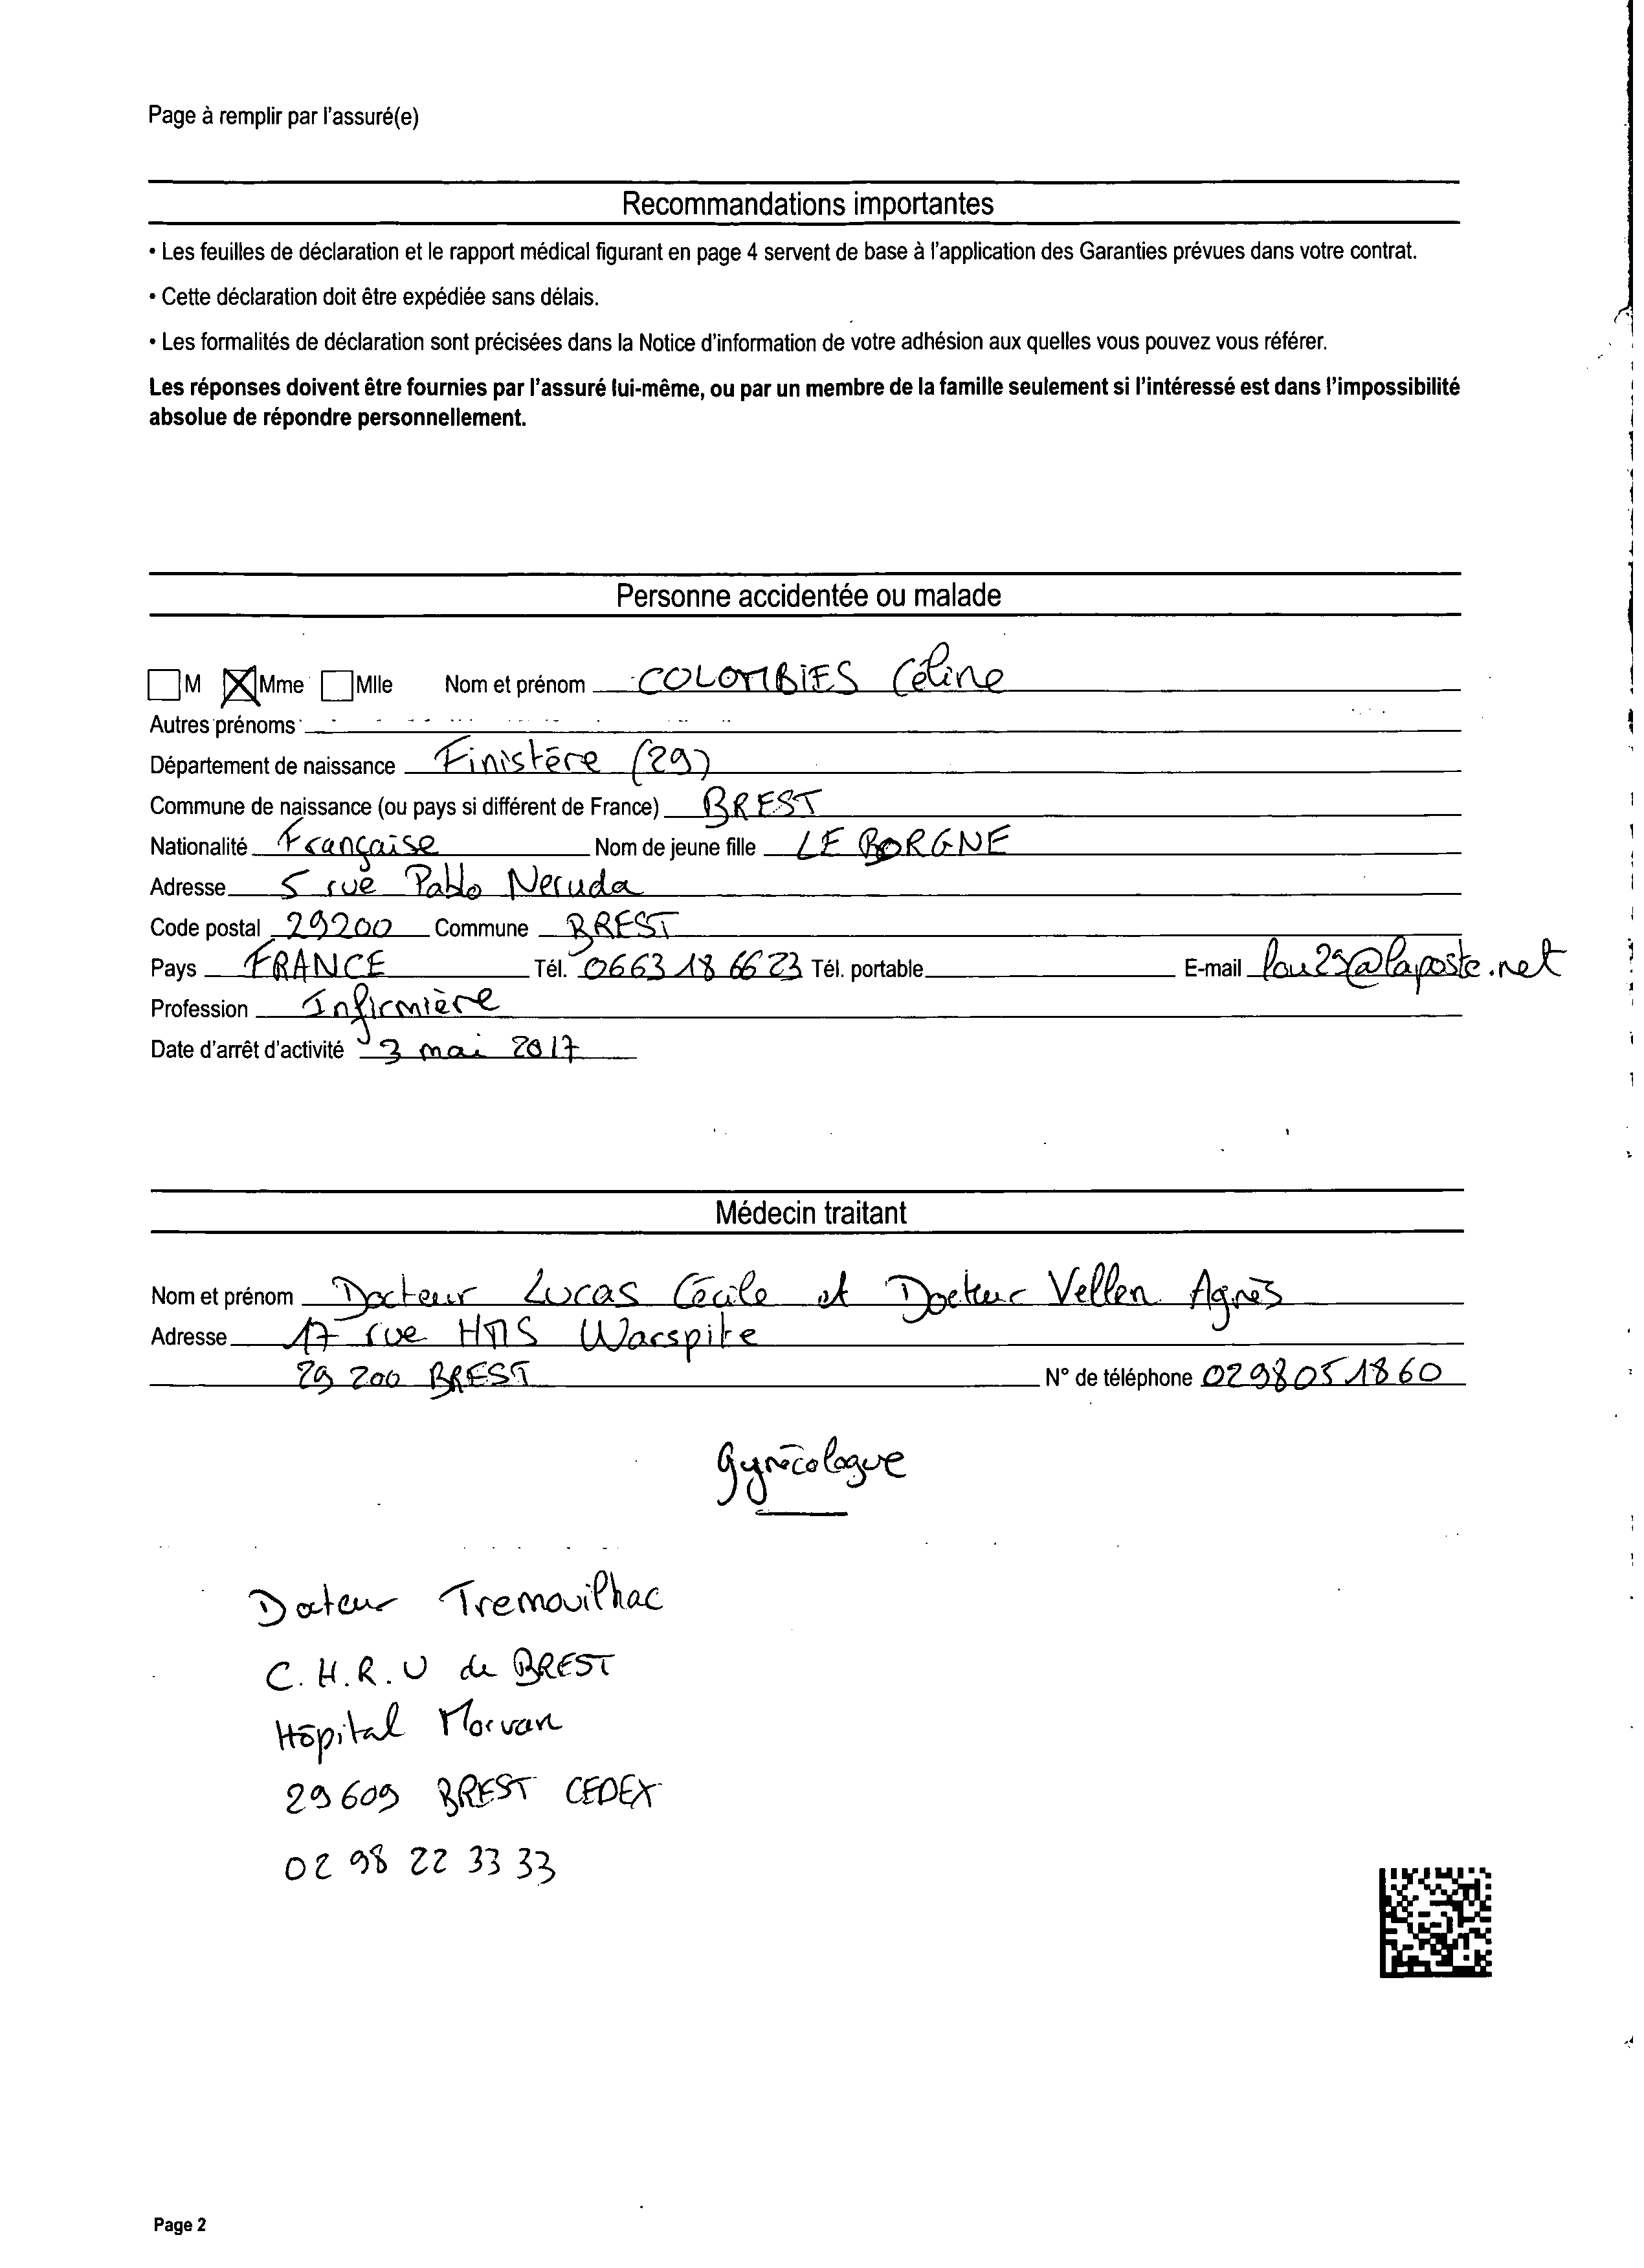 Page à remplir par l'assuré(e)
Recommandations importantes
• Les feuilles de déclaration et le rapport médical figurant en page 4 servent de base à l'application des Garanties prévues dans votre contrat.
• Cette déclaration doit être expédiée sans délais.
• Les formalités de déclaration sont précisées dans la Notice d'information de votre adhésion aux quelles vous pouvez vous référer.
Les réponses doivent être fournies par l'assuré lui-même, ou par un membre de la famille seulement si l'intéressé est dans l'impossibilité
absolue de répondre personnellement.
Personne accidentée ou malade
M Mme Mlle Nom et prénom COLOMBIES Céline
Autres prénoms
Département de naissance Finistère (29)
Commune de naissance (ou pays si différent de France) BREST
Nationalité Française Nom de jeune fille LE BORGNE
Adresse 5 rue Pablo Neruda
Code postal 29200 Commune BREST
Pays FRANCE Tél. 0663 18 66 23 Tél. portable E-mail lou29@laposte.net
Profession Infirmière
Date d'arrêt d'activité 3 mai 2017
Médecin traitant
Nom et prénom Docteur Lucas Cécile et Docteur Vellen Agnès
Adresse 17 rue HMS Warspite
29 200 BREST N° de téléphone 0298051860
gynécologue
Docteur Tremouilhac
C.H.R.U de BREST
Hôpital Morvan
29609 BREST CEDEX
02 98 22 33 33
Page 2